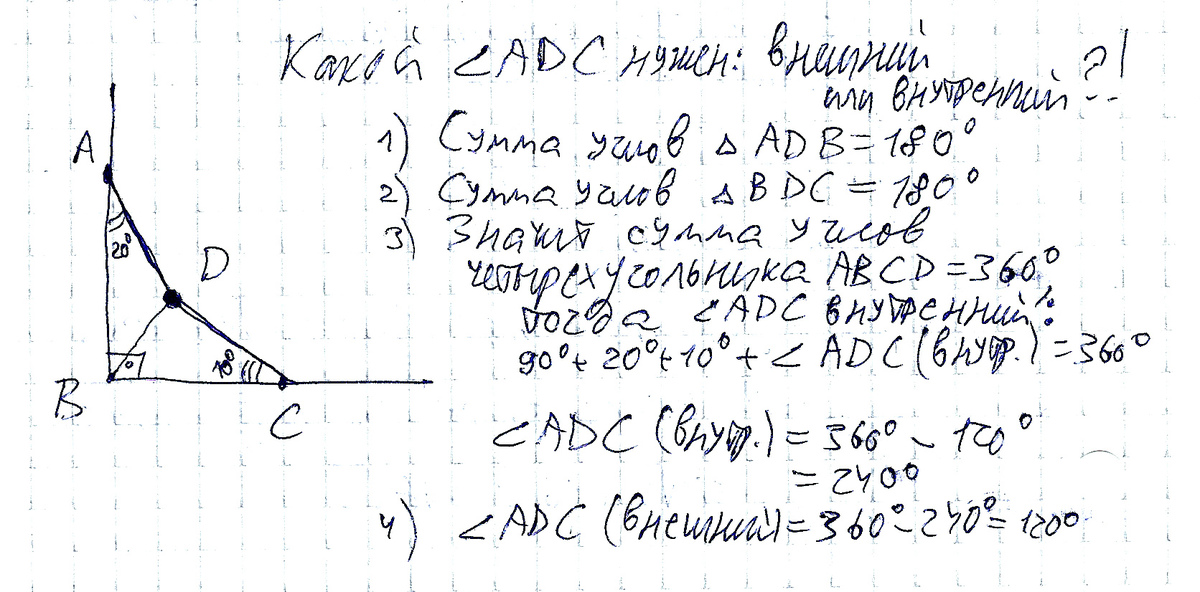 Какой ∠ADC нужен: внешний
или внутренний ?!
1) Сумма углов △ ADB = 180°
2) Сумма углов △ BDC = 180°
3) Значит сумма углов
четырехугольника ABCD = 360°
тогда ∠ADC внутренний:
90° + 20° + 10° + ∠ ADC (внутр.) = 360°
∠ADC (внутр.) = 360° - 120°
= 240°
4) ∠ADC (внешний) = 360° - 240° = 120°
A
20°
D
B
10°
C